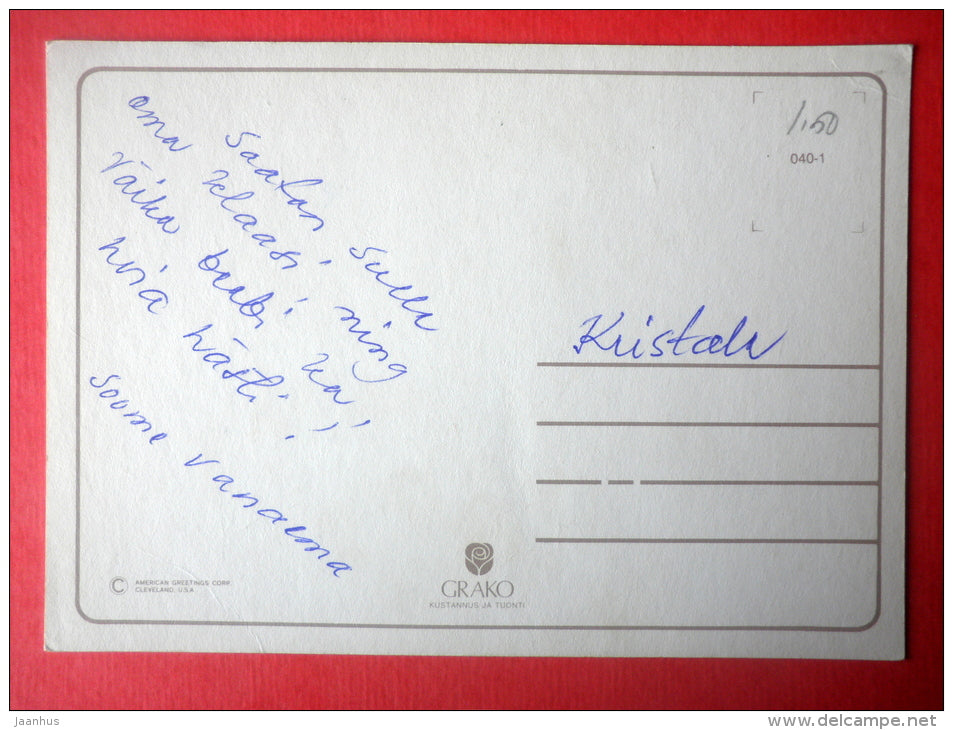 Saatan Sulle
oma klaasi ning
väike beebi ka!
hoia hästi!
Soome vanaema
Kristale
1.50
040-1
© AMERICAN GREETINGS CORP.
CLEVELAND, U.S.A.
GRAKO
KUSTANNUS JA TUONTI
Jaanhus
www.delcampe.net